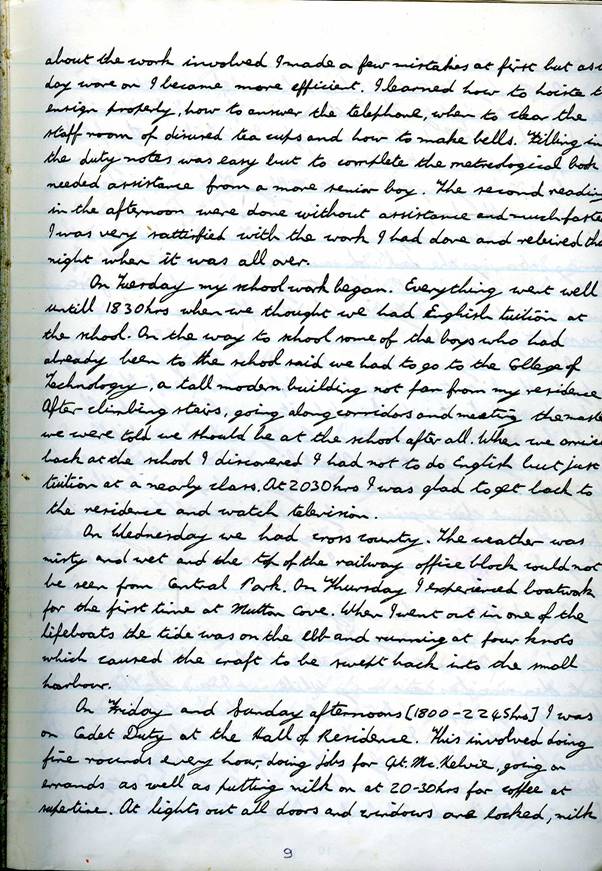 about the work involved I made a few mistakes at first but as
day wore on I became more efficient. I learned how to hoiste t
ensign properly, how to answer the telephone, when to clear the
staff room of disused tea cups and how to make bells. Filling in
the duty notes was easy but to complete the metreological book
needed assistance from a more senior boy. The second reading
in the afternoon were done without assistance and much faste
I was very sattisfied with the work I had done and releived tha
night when it was all over.
On Tuesday my school work began. Everything went well
untill 1830hrs when we thought we had English tuition at
the school. On the way to school some of the boys who had
already been to the school said we had to go to the College of
Technology, a tall modern building not far from my residence
After climbing stairs, going along corridors and meeting the maste
we were told we should be at the school after all. When we arrive
back at the school I discovered I had not to do English but just
tuition at a nearly class. At 2030hrs I was glad to get back to
the residence and watch television.
On Wednesday we had cross county. The weather was
misty and wet and the top of the railway office block would not
be seen from Central Park. On Thursday I experienced boatwok
for the first time at Mutton Cove. When I went out in one of the
lifeboats the tide was on the ebb and running at four knots
which caused the craft to be swept back into the small
harbour.
On Friday and Sunday afternoons [1800-2245hrs] I was
on Cadet Duty at the Hall of Residence. This involved doing
fire rounds every hour, doing jobs for Cpt. Mc.Kelvie, going on
errands as well as putting milk on at 20-30hrs for coffee at
supertine. At lights out all doors and windows are locked, milk
9